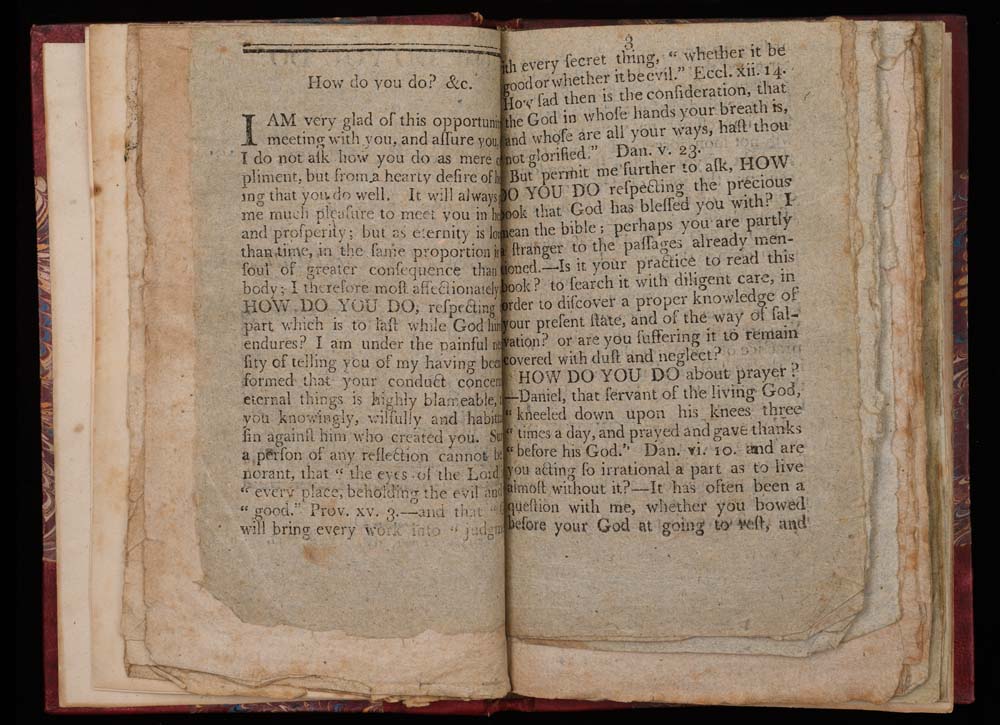 How do you do? &c.
I AM very glad of this opportuni
meeting with you, and aſſure you,
I do not aſk how you do as mere
pliment, but from a hearty deſire of
ing that you do well. It will always
me much pleaſure to meet you in he
and proſperity; but as eternity is lon
than time, in the ſame proportion is
ſoul of greater conſequence than
body; I therefore moſt affectionately
HOW DO YOU DO, reſpecting
part which is to laſt while God him
endures? I am under the painful ne
ſity of telling you of my having been
formed that your conduct concern
eternal things is highly blameable,
you knowingly, wilfully and habitu
ſin againſt him who created you. Su
a perſon of any reflection cannot be
norant, that “ the eyes of the Lord
“ every place, beholding the evil and
“ good.” Prov. xv. 3.—and that “
will bring every work into “ judgm
3
ith every ſecret thing, “ whether it be
good or whether it be evil.” Eccl. xii. 14.
How ſad then is the conſideration, that
the God in whoſe hands your breath is,
and whoſe are all your ways, haſt thou
not glorified.” Dan. v. 23.
But permit me further to aſk, HOW
DO YOU DO reſpecting the precious
book that God has bleſſed you with? I
mean the bible; perhaps you are partly
a ſtranger to the paſſages already men-
tioned.—Is it your practice to read this
book? to ſearch it with diligent care, in
order to diſcover a proper knowledge of
your preſent ſtate, and of the way of ſal-
vation? or are you ſuffering it to remain
covered with duſt and neglect?
HOW DO YOU DO about prayer?
—Daniel, that ſervant of the living God,
“ kneeled down upon his knees three
“ times a day, and prayed and gave thanks
“ before his God.” Dan. vi. 10. and are
you acting ſo irrational a part as to live
almoſt without it?—It has often been a
queſtion with me, whether you bowed
before your God at going to reſt, and